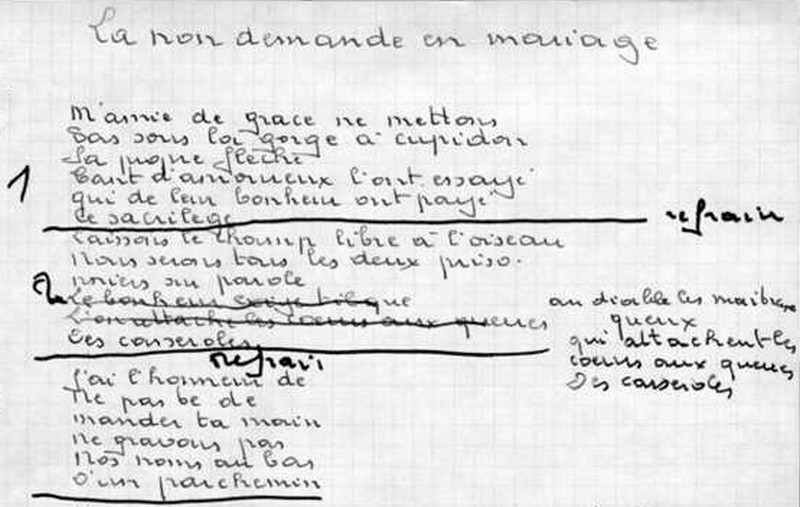 La non demande en mariage
M'amie de grace ne mettons
Pas sous la gorge a cupidon
Sa propre flèche
Tant d'amoureux l'ont essayé
qui de leur bonheur ont payé
ce sacrilege
1
refrain
Laissons le champ libre à l'oiseau
nous serons tous les deux priso.
nniers sur parole
2
Le bonheur
L'on attache les coeurs aux queues
Des casseroles
au diable les maitresses
queux
qui attachent les
coeurs aux queues
Des casseroles
refrain
J'ai l'honneur de
ne pas te de
mander ta main
ne gravons pas
nos noms au bas
D'un parchemin